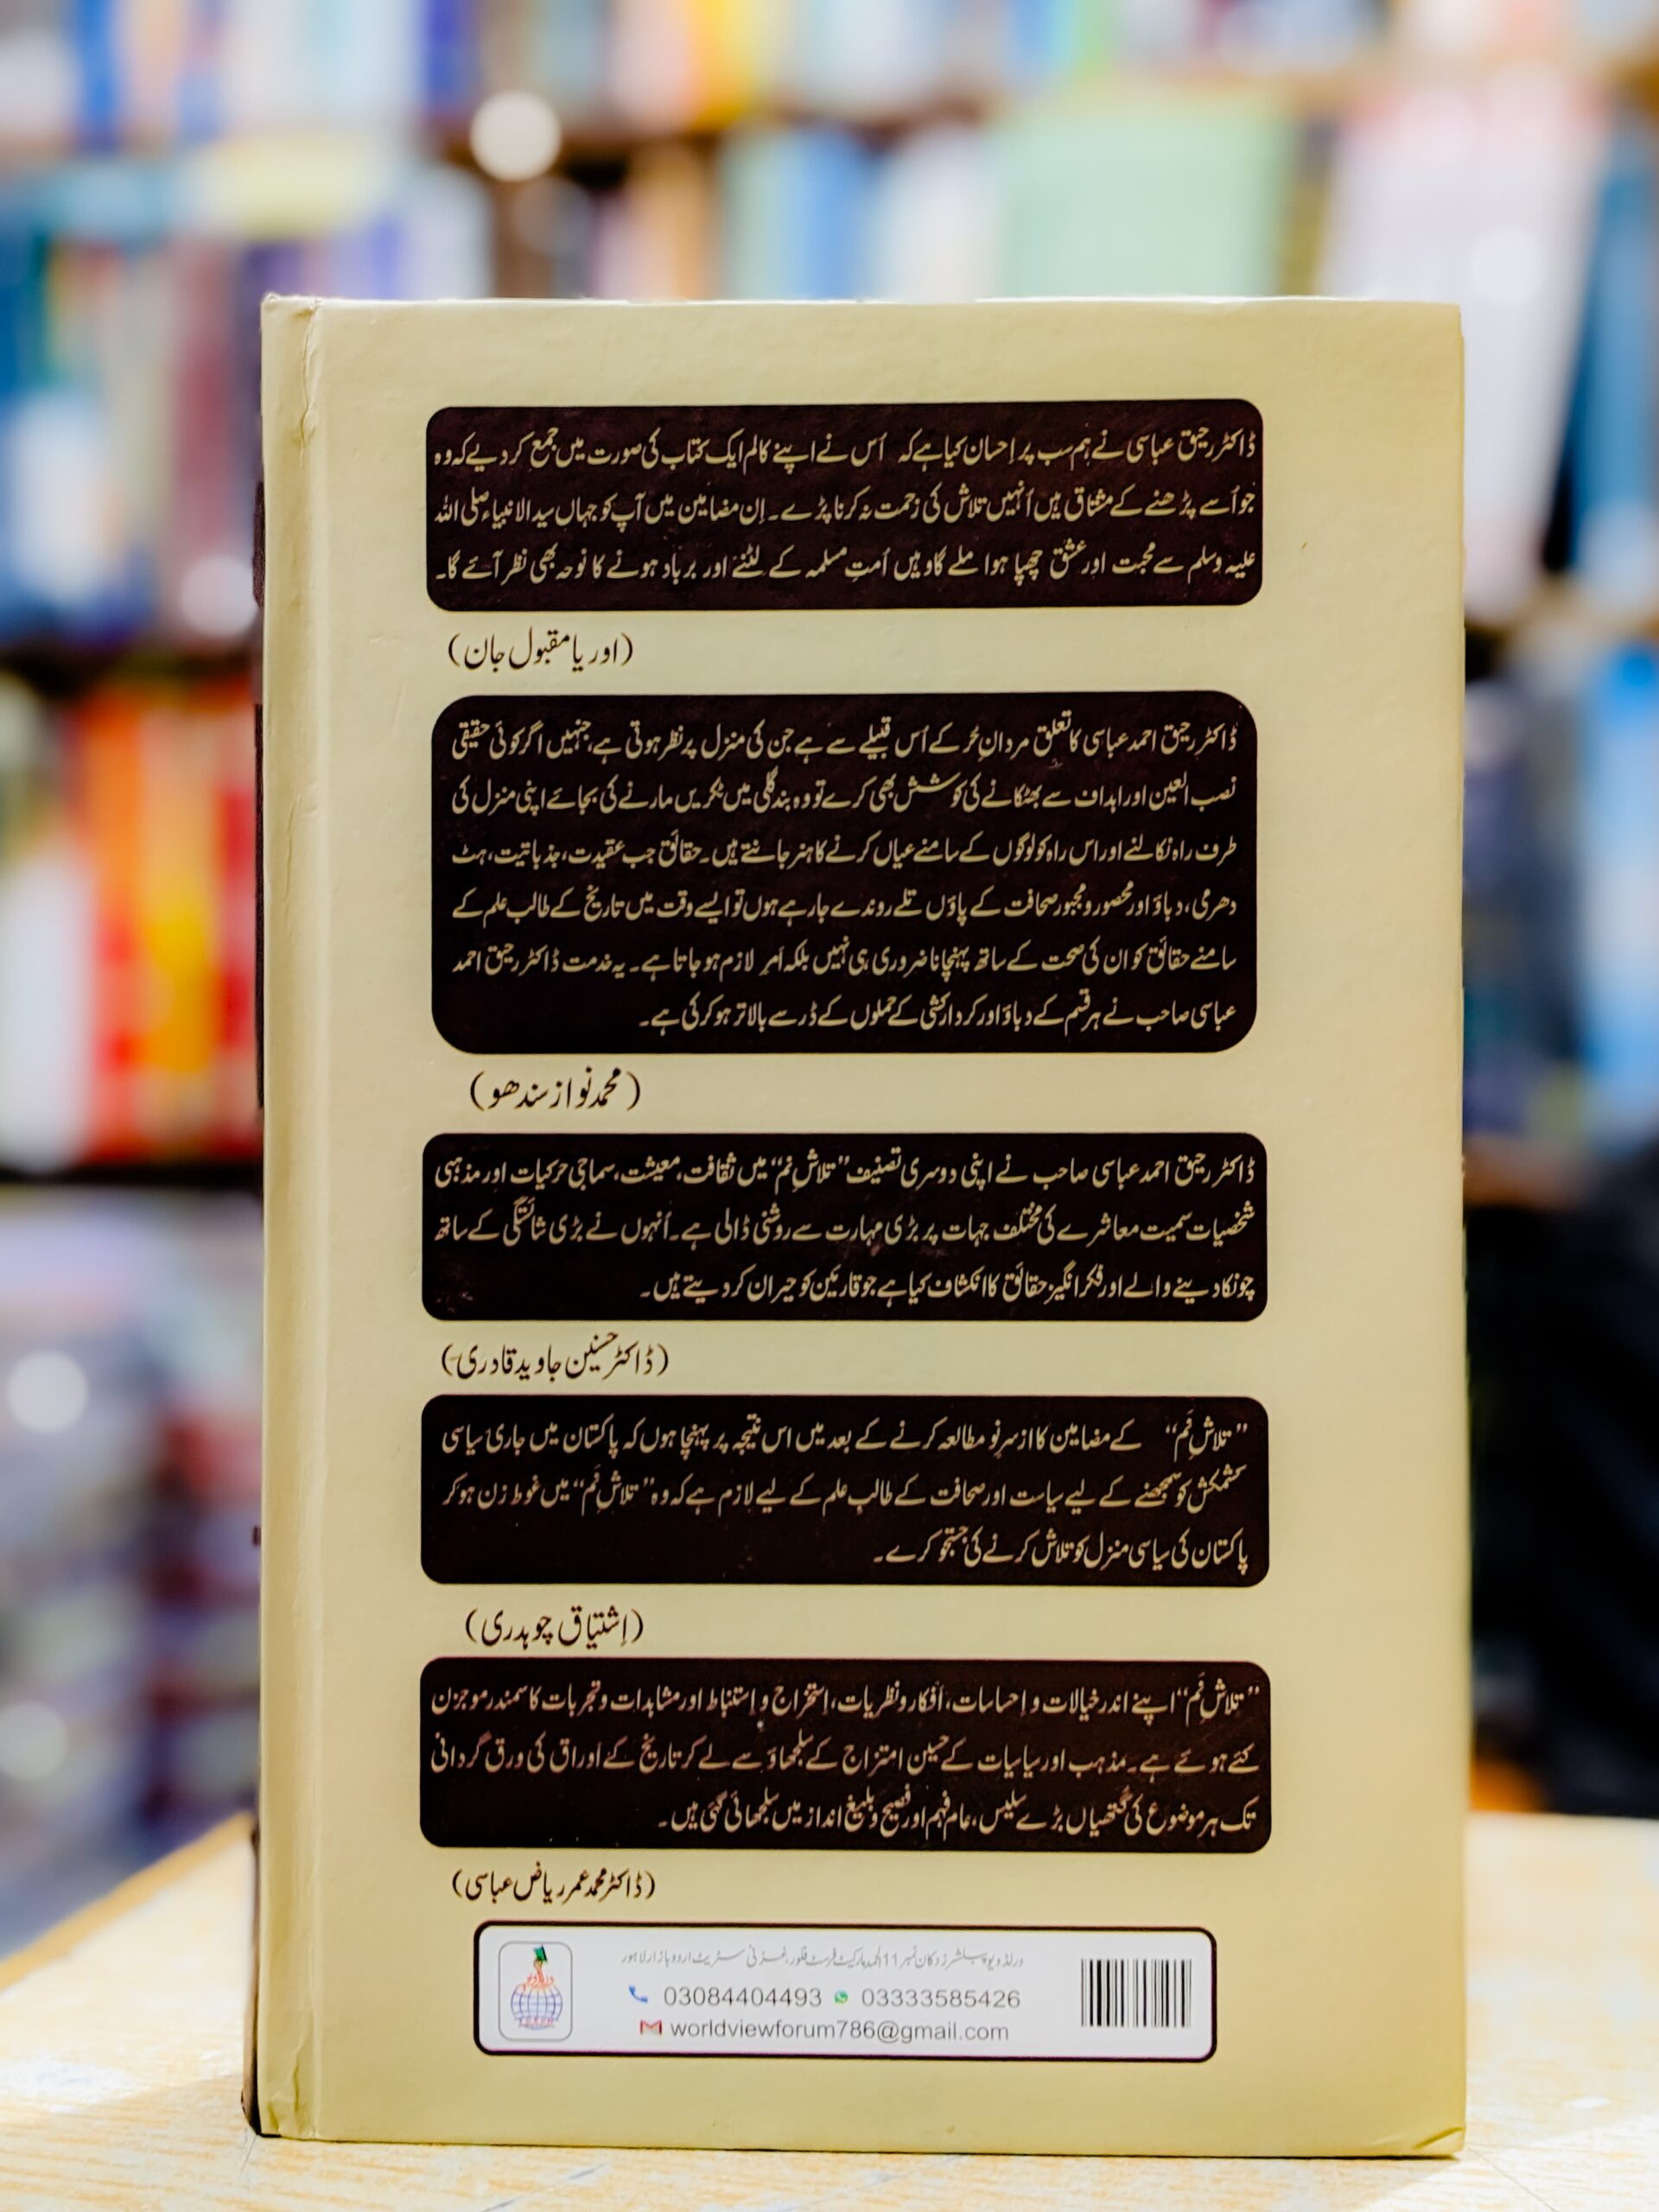 ڈاکٹر رحیق عباسی نے ہم سب پر اِحسان کیا ہے کہ اُس نے اپنے کالم ایک کتاب کی صورت میں جمع کر دیے کہ وہ
جو اُسے پڑھنے کے مشتاق ہیں اُنہیں تلاش کی زحمت نہ کرنا پڑے۔ اِن مضامین میں آپ کو جہاں سید الانبیاء صلی اللہ
علیہ وسلم سے محبت اور عشق چھپا ہوا ملے گا وہیں اُمتِ مسلمہ کے لٹنے اور برباد ہونے کا نوحہ بھی نظر آئے گا۔
(اوریا مقبول جان)
ڈاکٹر رحیق احمد عباسی کا تعلق مردانِ حُر کے اُس قبیلے سے ہے جن کی منزل پر نظر ہوتی ہے، جنہیں اگر کوئی حقیقی
نصب العین اور اہداف سے بھٹکانے کی کوشش بھی کرے تو وہ بند گلی میں ٹکریں مارنے کی بجائے اپنی منزل کی
طرف راہ نکالنے اور اس راہ کو لوگوں کے سامنے عیاں کرنے کا ہنر جانتے ہیں۔ حقائق جب عقیدت، جذباتیت، ہٹ
دھرمی، دباؤ اور محصور و مجبور صحافت کے پاؤں تلے روندے جا رہے ہوں تو ایسے وقت میں تاریخ کے طالب علم کے
سامنے حقائق کو ان کی صحت کے ساتھ پہنچانا ضروری ہی نہیں بلکہ اَمرِ لازم ہو جاتا ہے۔ یہ خدمت ڈاکٹر رحیق احمد
عباسی صاحب نے ہر قسم کے دباؤ اور کردار کشی کے حملوں کے ڈر سے بالاتر ہو کر کی ہے۔
(محمد نواز سندھو)
ڈاکٹر رحیق احمد عباسی صاحب نے اپنی دوسری تصنیف ”تلاشِ نَم“ میں ثقافت، معیشت، سماجی حرکیات اور مذہبی
شخصیات سمیت معاشرے کی مختلف جہات پر بڑی مہارت سے روشنی ڈالی ہے۔ اُنہوں نے بڑی شائستگی کے ساتھ
چونکا دینے والے اور فکر انگیز حقائق کا انکشاف کیا ہے جو قارئین کو حیران کر دیتے ہیں۔
(ڈاکٹر حسنین جاوید قادری)
”تلاشِ نَم“ کے مضامین کا از سرِ نو مطالعہ کرنے کے بعد میں اس نتیجہ پر پہنچا ہوں کہ پاکستان میں جاری سیاسی
کشمکش کو سمجھنے کے لیے سیاست اور صحافت کے طالبِ علم کے لیے لازم ہے کہ وہ ”تلاشِ نَم“ میں غوطہ زن ہو کر
پاکستان کی سیاسی منزل کو تلاش کرنے کی جستجو کرے۔
(اِشتیاق چوہدری)
”تلاشِ نَم“ اپنے اندر خیالات و اِحساسات، اَفکار و نظریات، اِستخراج و اِستنباط اور مشاہدات و تجربات کا سمندر موجزن
کئے ہوئے ہے۔ مذہب اور سیاسیات کے حسین امتزاج کے سلجھاؤ سے لے کر تاریخ کے اوراق کی ورق گردانی
تک ہر موضوع کی گتھیاں بڑے سلیس، عام فہم اور فصیح و بلیغ انداز میں سلجھائی گئی ہیں۔
(ڈاکٹر محمد عمر ریاض عباسی)
ورلڈ ویو پبلشرز دکان نمبر 11 الحمد مارکیٹ فرسٹ فلور، غزنی سٹریٹ اردو بازار لاہور
03084404493 03333585426
worldviewforum786@gmail.com